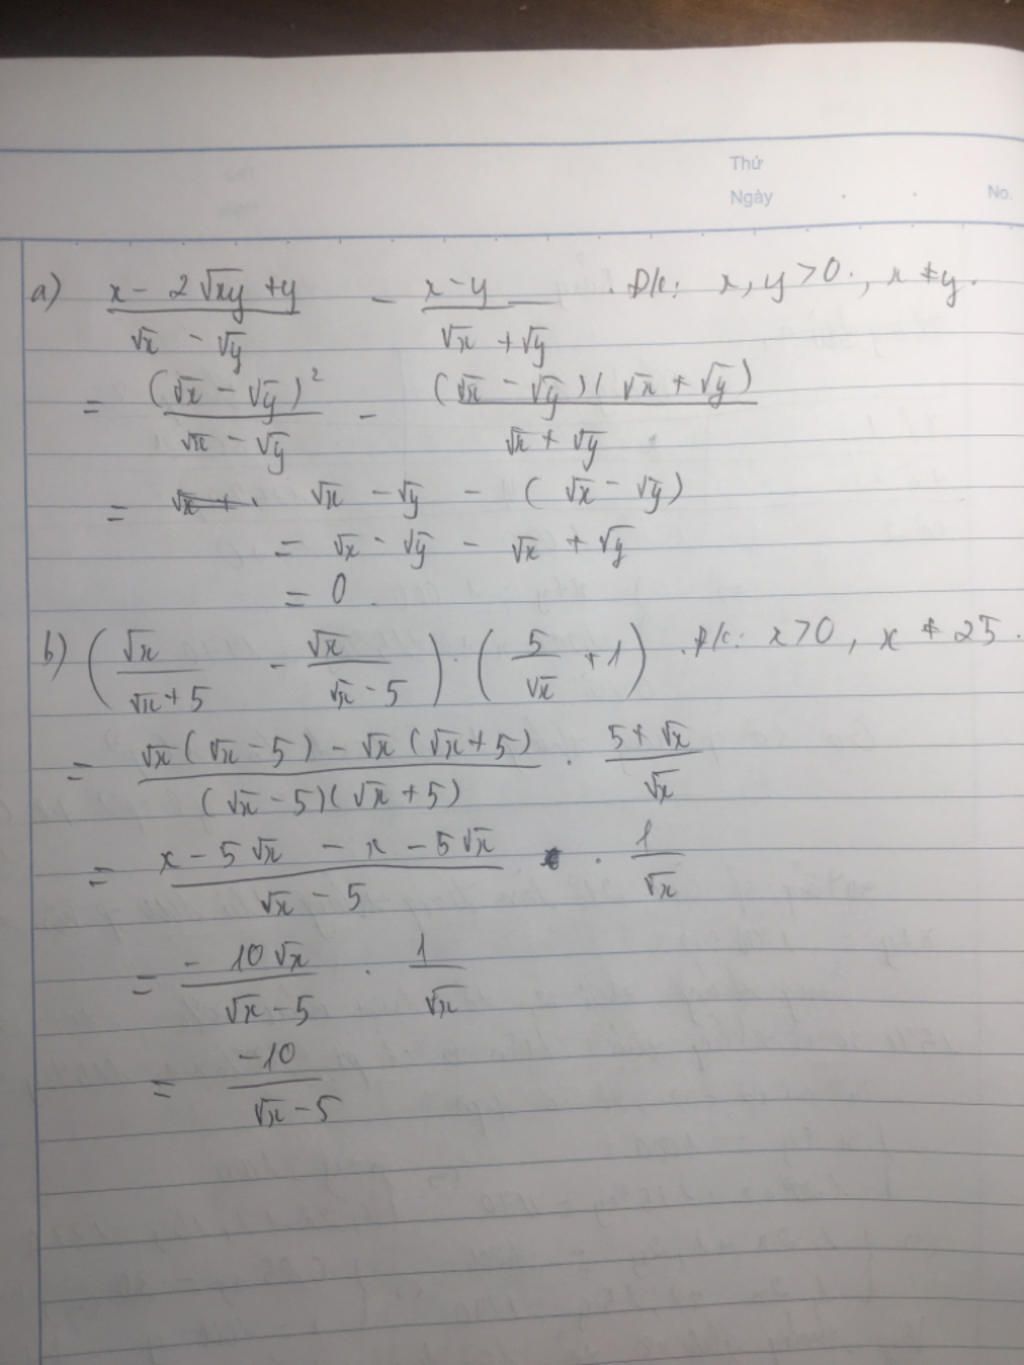 Thứ
Ngày . . No.
a) (x - 2√xy + y)/(√x - √y) - (x - y)/(√x + √y) . Đ/k: x, y > 0 ; x ≠ y.
= (√x - √y)²/(√x - √y) - (√x - √y)(√x + √y)/(√x + √y)
= √x - √y - (√x - √y)
= √x - √y - √x + √y
= 0.
b) (√x/(√x + 5) - √x/(√x - 5)) . (5/√x + 1) . Đ/k: x > 0, x ≠ 25.
= (√x(√x - 5) - √x(√x + 5))/((√x - 5)(√x + 5)) . (5 + √x)/√x
= (x - 5√x - x - 5√x)/(√x - 5) . 1/√x
= (-10√x)/(√x - 5) . 1/√x
= -10/(√x - 5)